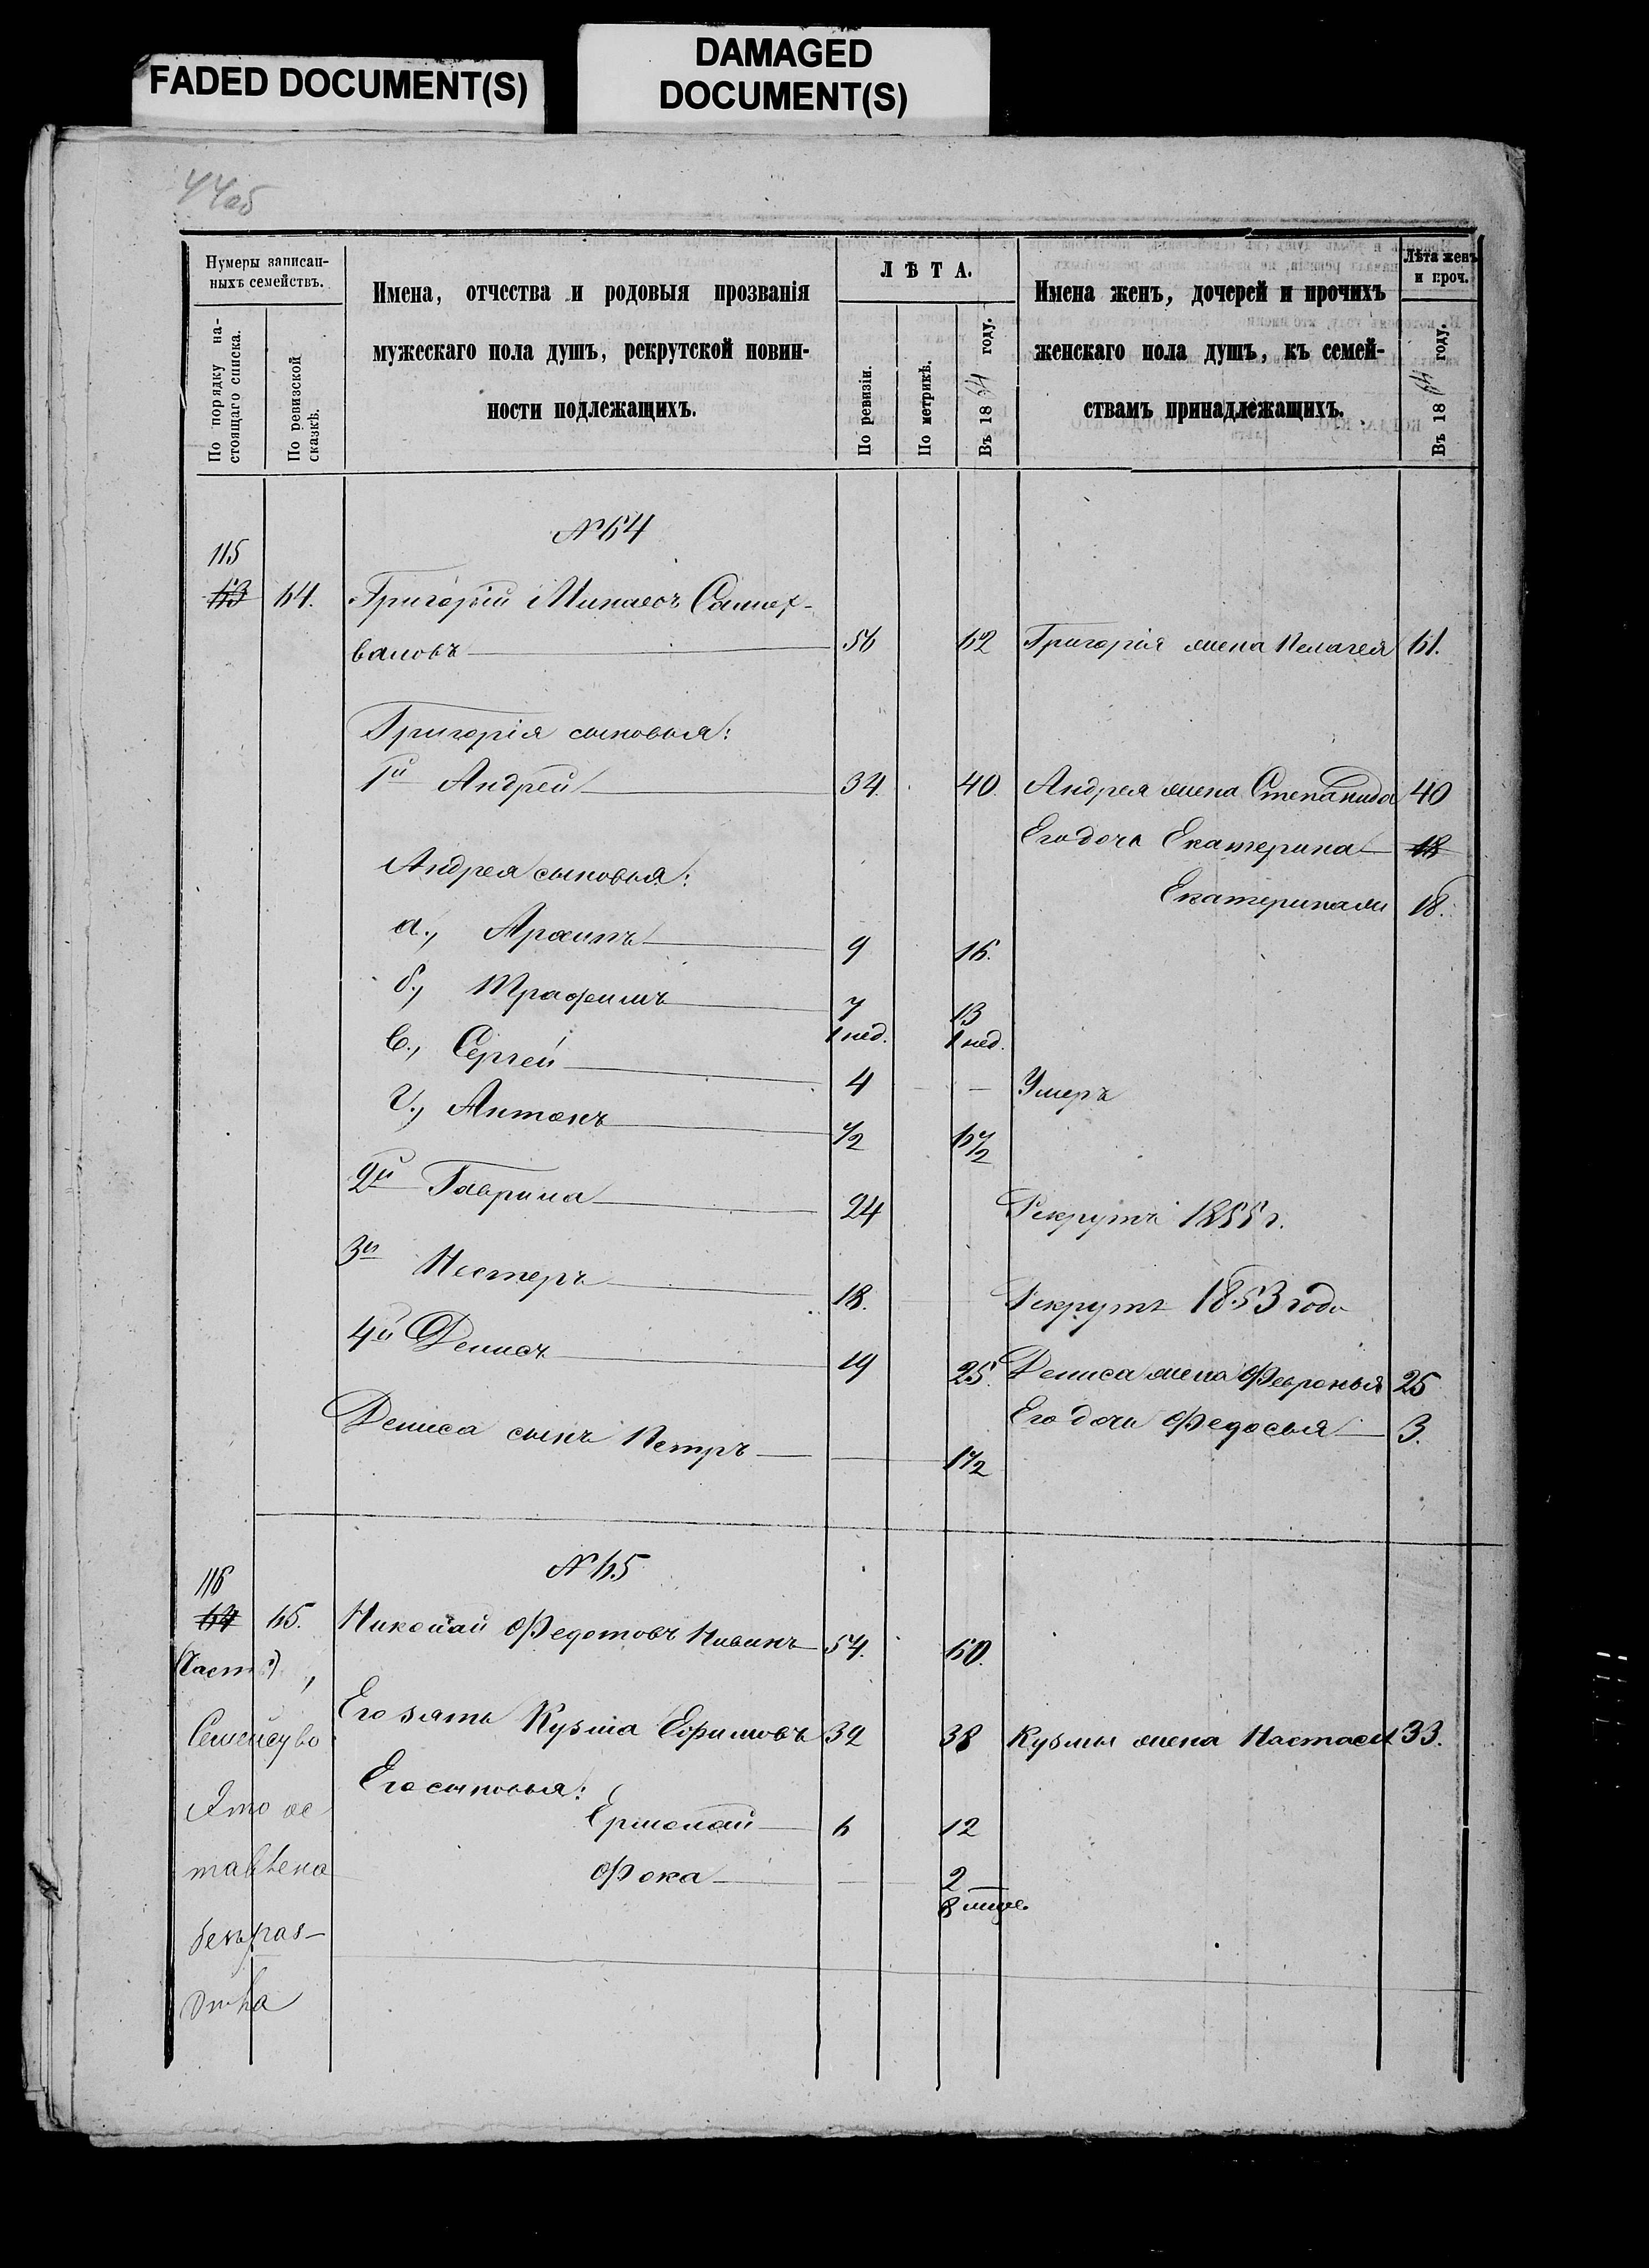 FADED DOCUMENT(S)
DAMAGED
DOCUMENT(S)
44об
Нумеры записан-
ныхъ семействъ.
По порядку на-
стоящаго списка.
По ревизской
сказкѣ.
Имена, отчества и родовыя прозванія
мужескаго пола душъ, рекрутской повин-
ности подлежащихъ.
ЛѢТА.
По ревизіи.
По метрикѣ.
Въ 1864 году.
Имена женъ, дочерей и прочихъ
женскаго пола душъ, къ семей-
ствамъ принадлежащихъ.
Лѣта женъ
и проч.
Въ 1864 году.
№ 64
115
63 64. Григорій Минаевъ
вановъ 56 62 Григорія жена Пелагея 61.
Григорія сыновья:
1й Андрей 34. 40. Андрея жена Степанида 40
Его дочь Екатерина 18
Андрея сыновья:
Екатерина 18.
а., 9 16.
б., Трафимъ 7 13
1 нед. 1 нед.
в., Сергей 4 — Умеръ
г., Антонъ ½ 6½
2й Гаврила 24 Рекрутъ 1855 г.
3й Нестеръ 18. Рекрутъ 1853 года
4й Денисъ 19 25. Дениса жена Февронья 25
Его дочь Федосья 3.
Дениса сынъ Петръ — 1½
№ 65
116
64 65. Николай Федотовъ 54. 60.
Его зять Кузма Ефимовъ 32 38 Кузмы жена Настасья 33.
Семейсуво
Его сыновья:
Ермолай 6 12
Фока — 2
8 мҍс.